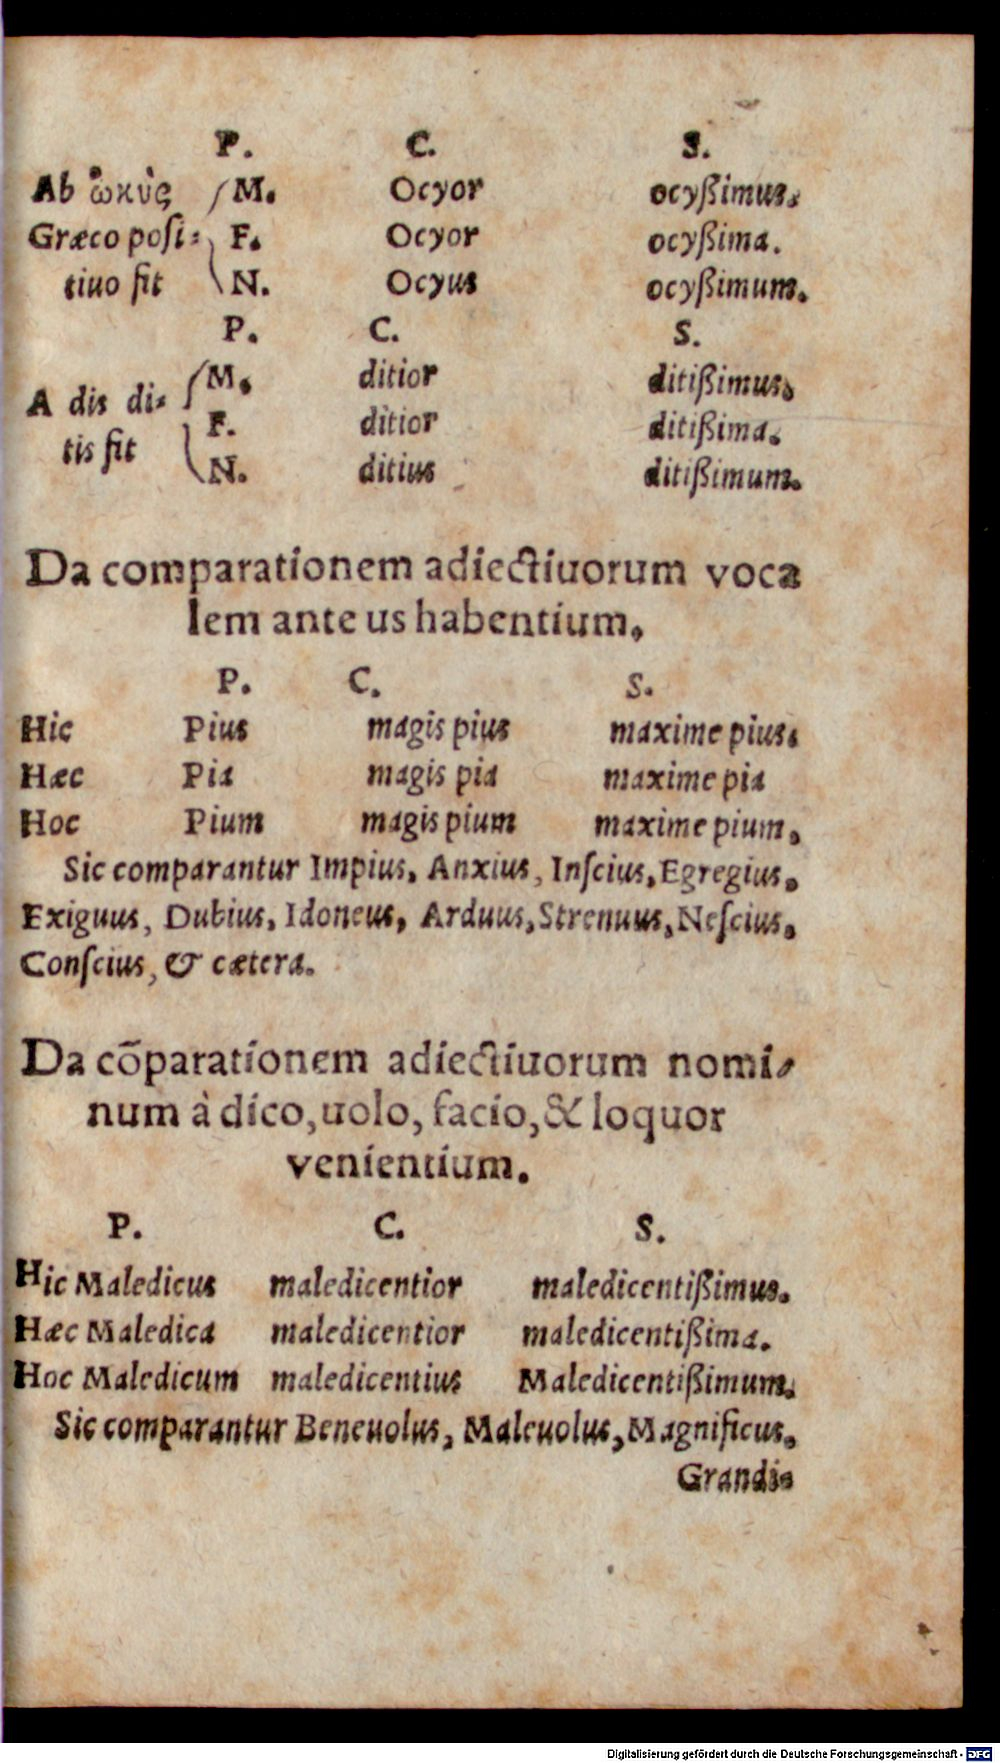 P. C. S.
Ab ὠκὺς M. Ocyor ocyßimus.
Græco posi- F. Ocyor ocyßima.
tiuo fit N. Ocyus ocyßimum.
P. C. S.
M. ditior ditißimus.
A dis di- F. ditior ditißima.
tis fit N. ditius ditißimum.
Da comparationem adiectiuorum voca
lem ante us habentium.
P. C. S.
Hic Pius magis pius maxime pius.
Hæc Pia magis pia maxime pia
Hoc Pium magis pium maxime pium.
Sic comparantur Impius, Anxius, Inſcius, Egregius,
Exiguus, Dubius, Idoneus, Arduus, Strenuus, Neſcius,
Conſcius, & cætera.
Da cōparationem adiectiuorum nomi-
num à dico, uolo, facio, & loquor
venientium.
P. C. S.
Hic Maledicus maledicentior maledicentißimus.
Hæc Maledica maledicentior maledicentißima.
Hoc Maledicum maledicentius Maledicentißimum.
Sic comparantur Beneuolus, Maleuolus, Magnificus,
Grandi-
Digitalisierung gefördert durch die Deutsche Forschungsgemeinschaft - DFG